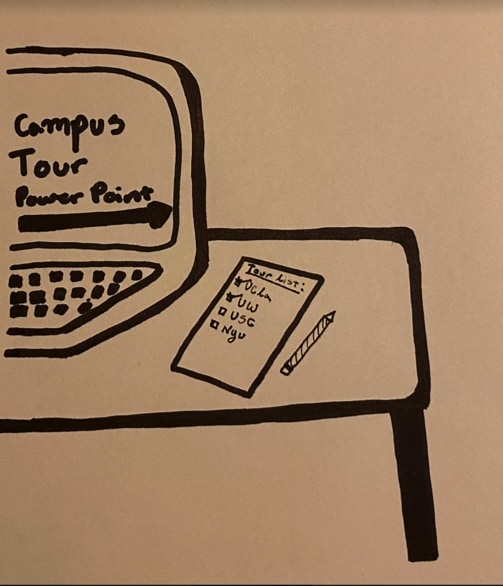 Campus
Tour
Power Point
Tour List:
Ucla
UW
USC
Nyu